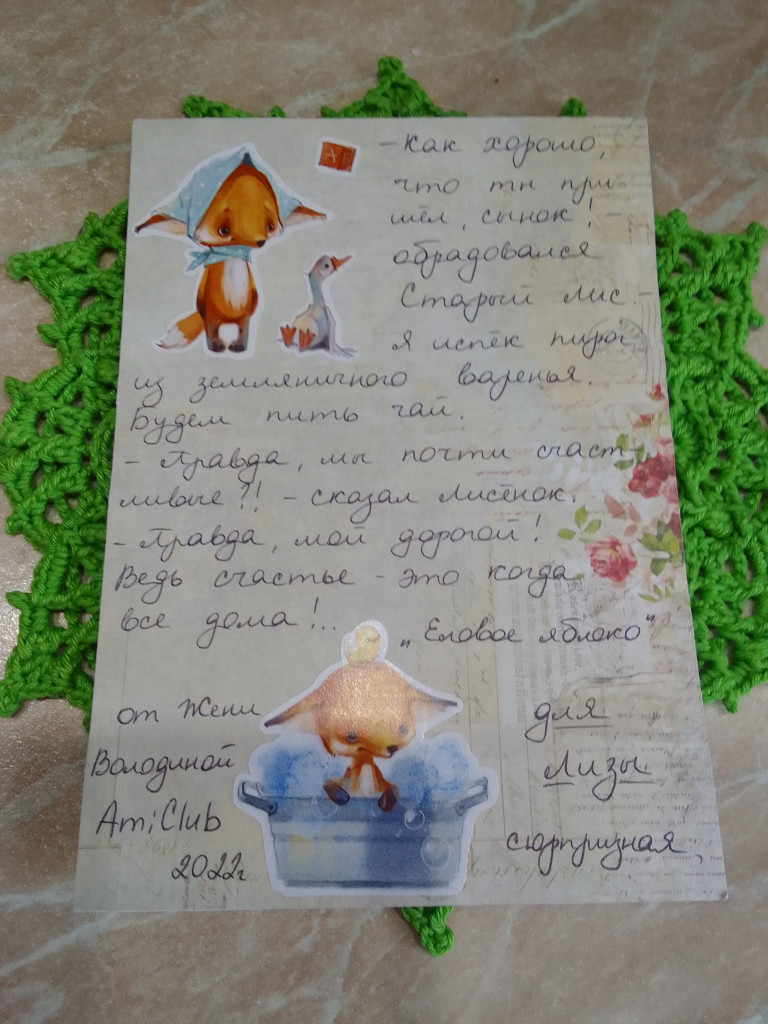 - Как хорошо,
что ты при-
шёл, сынок! -
обрадовался
Старый Лис. -
Я испёк пирог
из земляничного варенья.
Будем пить чай.
- Правда, мы почти счаст-
ливые?!! - сказал Лисёнок.
- Правда, мой дорогой!
Ведь счастье - это когда
все дома!..
„Еловое яблоко"
от Жени
Володиной
AmiClub
2022г
для
Лизы
сюрпризная
АБ